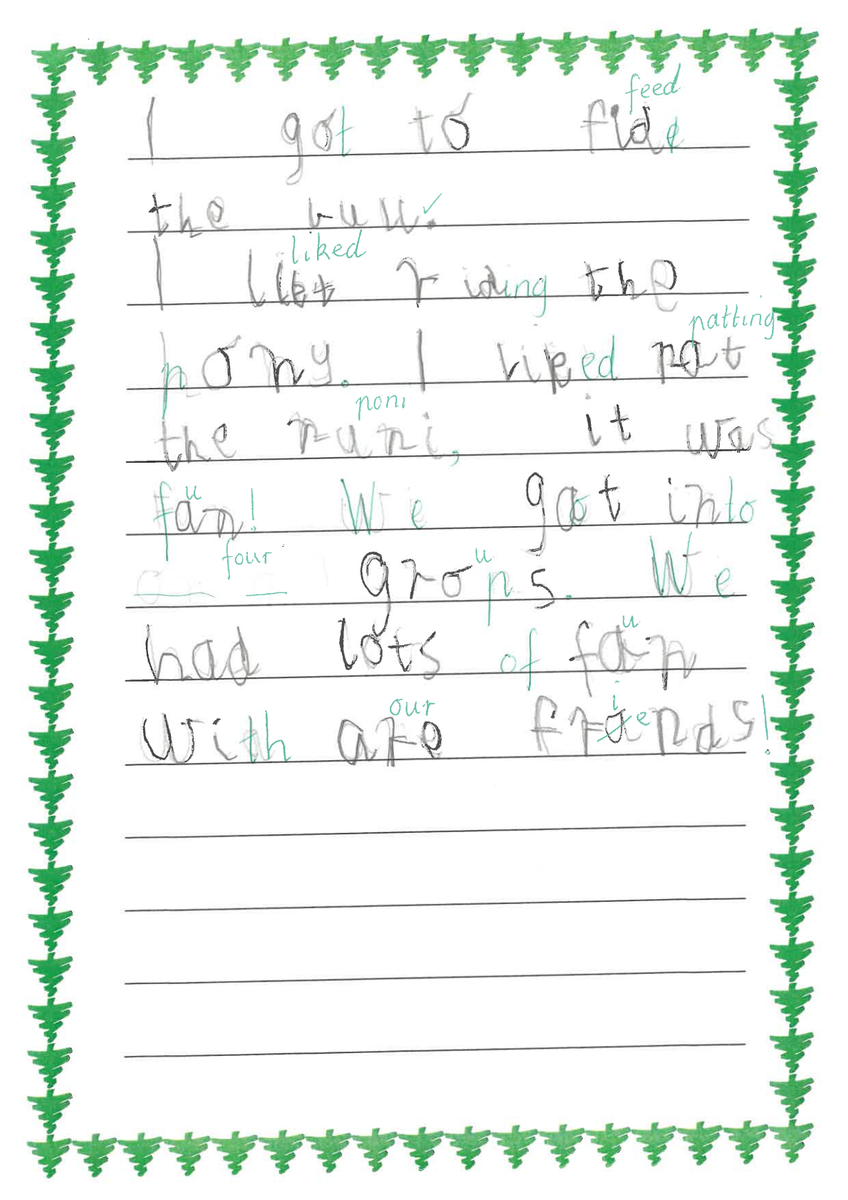 feed
I got to fide
the bull.
liked
I liket riding the
patting
pony. I liked pat
poni
the puni, it was
u
fan! We got into
four u
grops. We
u
had lots of fan
our ie
with are frands!